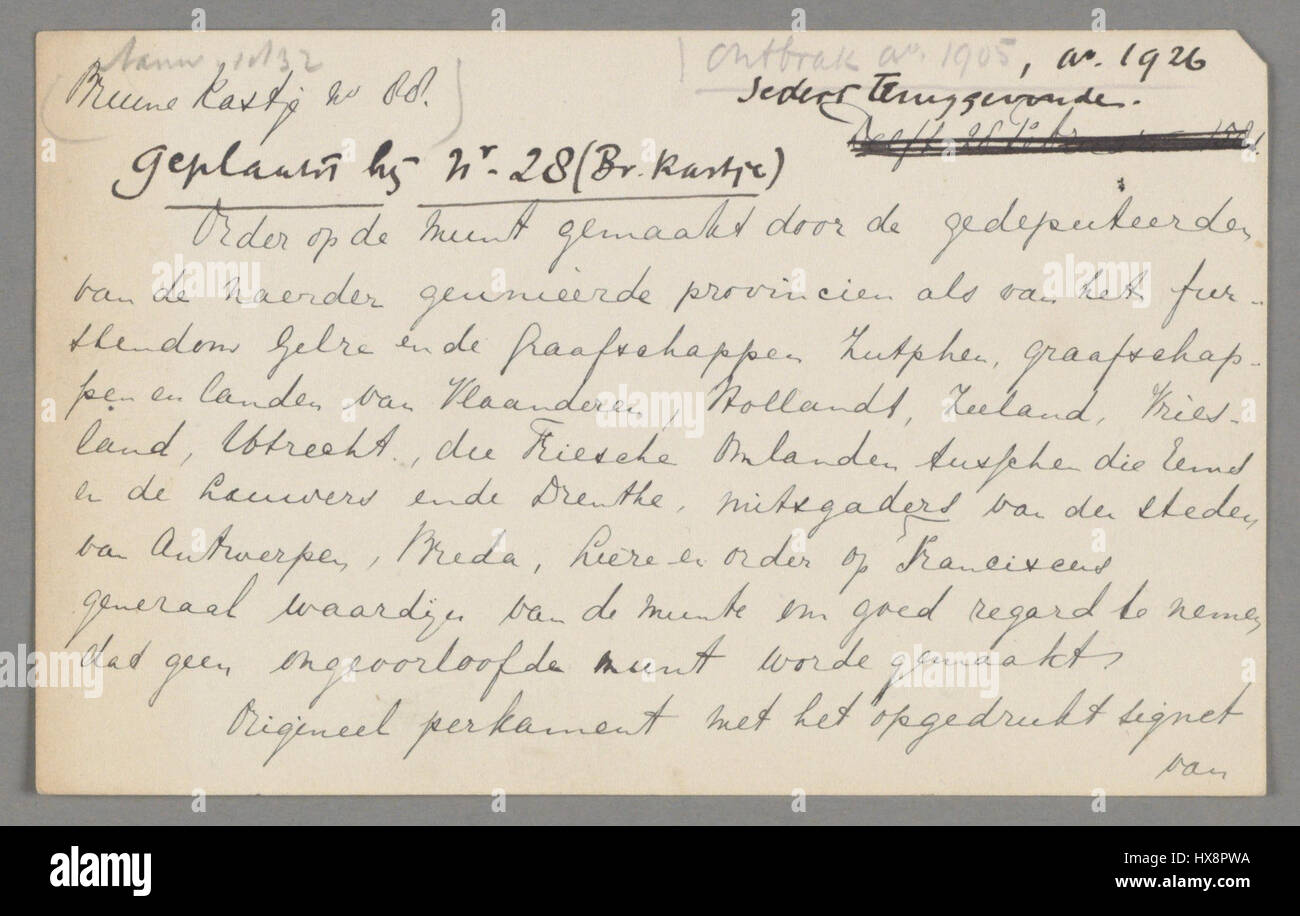 Aanw. 1132
Bruine Kastje No 88.
Ontbrak Ao. 1905, Ao. 1926
sedert teruggevonden.
Delft 26 Febr
Geplaatst bij Nr. 28 (Br. Kastje)
Order op de munt gemaakt door de gedeputeerden
van de naerder geunieerde provincien als van het fur-
stendom Gelre ende Graafschappen Zutphen, graafschap-
pen en landen van Vlaanderen, Hollandt, Zeeland, Vries-
land, Utrecht, die Friesche Omlanden tusschen die Eems
en de Lauwers ende Drenthe, mitsgaders van den steden
van Antwerpen, Breda, Liere en order op Franciscus
generaal waardijn van de munte om goed regard te nemen
dat geen ongeoorloofde munt worde gemaakt
Origineel perkament met het opgedrukt signet
van
alamy
Image ID: HX8PWA
www.alamy.com